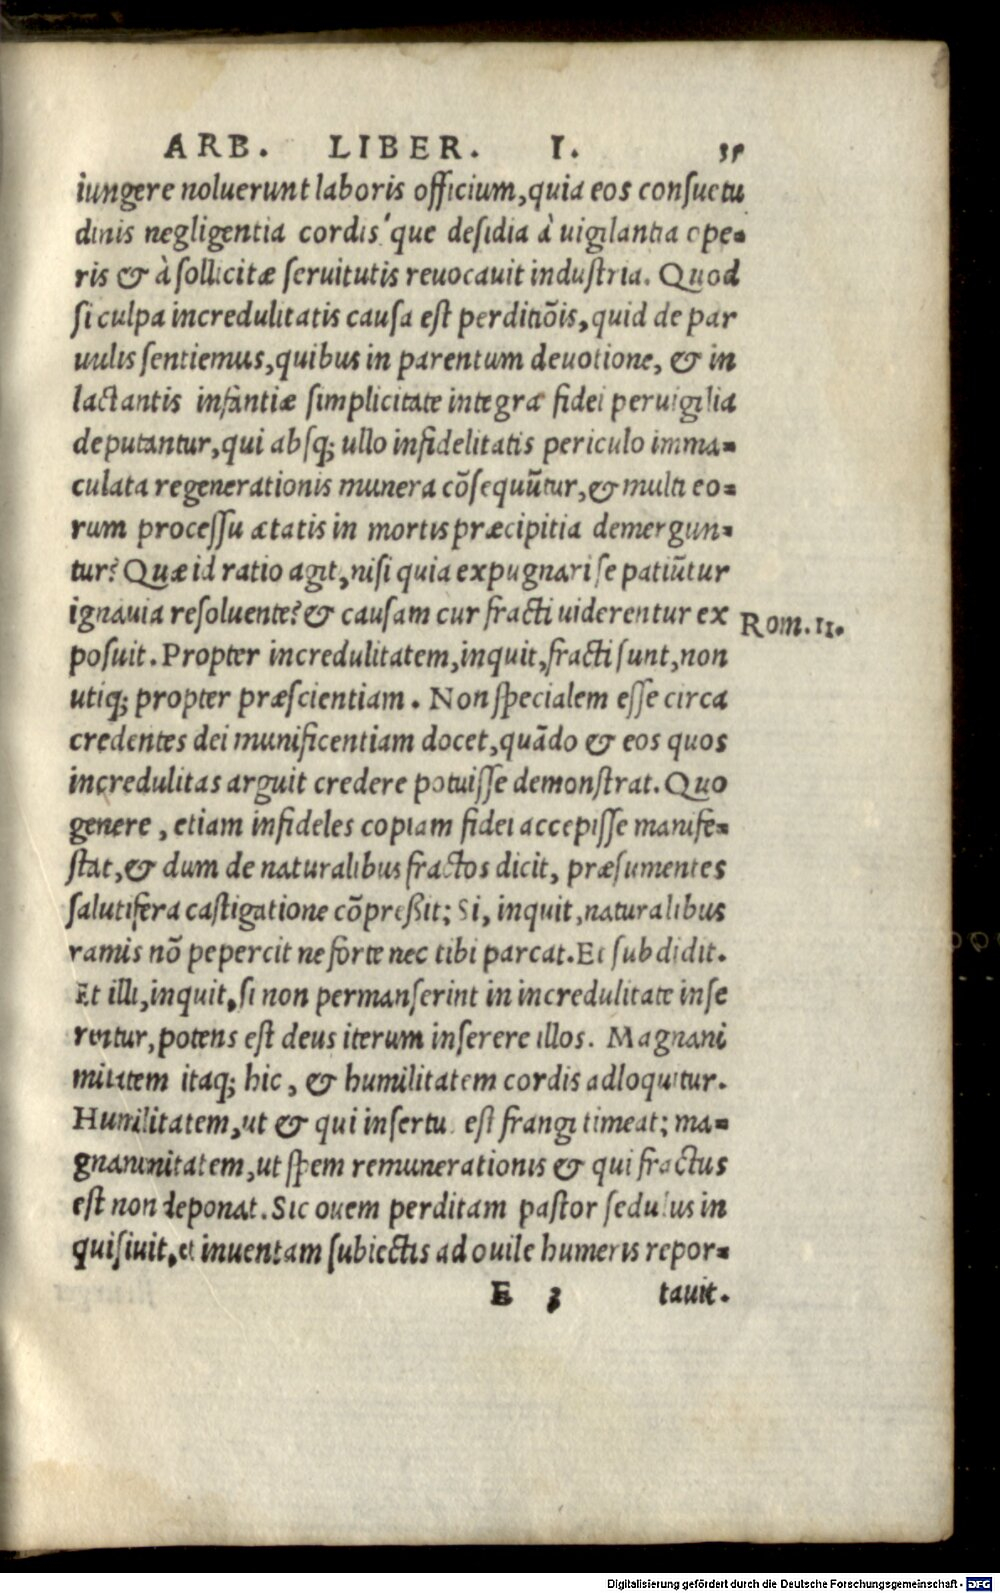 ARB. LIBER. I. 35
iungere noluerunt laboris officium, quia eos consuetu
dinis negligentia cordis'que desidia à uigilantia ope-
ris & à sollicitæ seruitutis reuocauit industria. Quod
si culpa incredulitatis causa est perditiõis, quid de par
uulis sentiemus, quibus in parentum deuotione, & in
lactantis infantiæ simplicitate integræ fidei peruigilia
deputantur, qui absq; ullo infidelitatis periculo imma-
culata regenerationis munera cõsequũtur, & multi eo-
rum processu ætatis in mortis præcipitia demergun-
tur? Quæ id ratio agit, nisi quia expugnari se patiũtur
ignauia resoluente? & causam cur fracti uiderentur ex
Rom. 11.
posuit. Propter incredulitatem, inquit, fracti sunt, non
utiq; propter præscientiam. Non specialem esse circa
credentes dei munificentiam docet, quãdo & eos quos
incredulitas arguit credere potuisse demonstrat. Quo
genere, etiam infideles copiam fidei accepisse manife-
stat, & dum de naturalibus fractos dicit, præsumentes
salutifera castigatione cõpreßit; Si, inquit, naturalibus
ramis nõ pepercit ne forte nec tibi parcat. Et subdidit.
Et illi, inquit, si non permanserint in incredulitate inse
rentur, potens est deus iterum inserere illos. Magnani
mitatem itaq; hic, & humilitatem cordis adloquitur.
Humilitatem, ut & qui insertu est frangi timeat; ma-
gnanimitatem, ut spem remunerationis & qui fractus
est non deponat. Sic ouem perditam pastor sedulus in
quisiuit, et inuentam subiectis ad ouile humeris repor-
E 3 tauit.
Digitalisierung gefördert durch die Deutsche Forschungsgemeinschaft - DFG